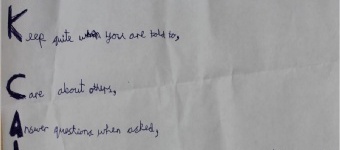 Keep quite when you are told to,
Care about others,
Answer questions when asked,